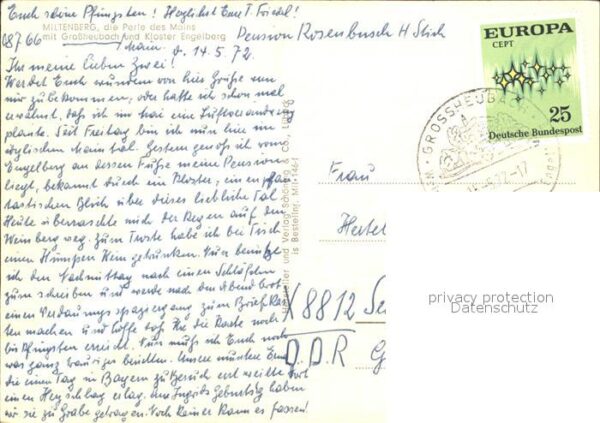 Euch schöne Pfingsten! Herzlichst Eure T. Friedel!
MILTENBERG, die Perle des Mains
mit Großheubach und Kloster Engelberg
8766 /Main. d. 14.5.72
Pension Rosenbusch H Stich
Ihr meine lieben zwei!
Werdet Euch wundern von hier Grüße von
mir zu bekommen, oder hatte ich schon mal
erwähnt, daß ich im Mai eine Luftveränderung
plante. Seit Freitag bin ich nun hier im
Maintal. Gestern genoß ich vom
Engelberg an dessen Fuße meine Pension
liegt, bekannt durch ein Kloster, ein phan-
tastischen Blick über dieses liebliche Tal
Heute überraschte mich der Regen auf dem
Weinberg weg. Zum Troste habe ich bei Tisch
einen Humpen Wein getrunken. Nun benütze
ich den Nachmittag nach einem Schläfchen
zum schreiben und werde nach dem Abendbrot
einen Verdauungsspaziergang zum Briefka-
sten machen und hoffe daß die Karte noch
bis Pfingsten erreicht. Nun muß ich Euch noch
was ganz trauriges berichten. Unsere
die einen Tag in Bayern zu Besuch weilte dort
einen Herzschlag erlag. Am Ingrids Geburtstag haben
wir sie zu Grabe getragen. Noch keiner kann es fassen!
Hersteller und Verlag Schöning & Co., Lübeck
EUROPA
CEPT
25
Deutsche Bundespost
GROSSHEUB
-17
Frau
8812
D.D.R
privacy protection
Datenschutz